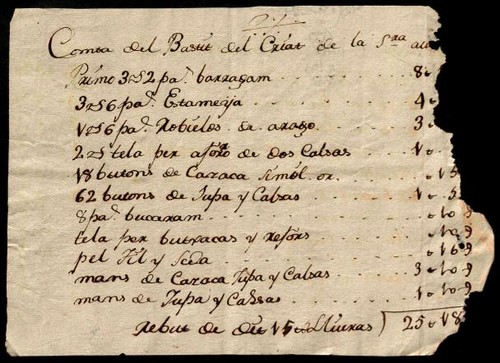 Comta del Bastit del Criat de la Sra
Primo 3 c 2 pa. barragam . . . 8 c
3 c 6 pa. Estamenja . . . 4 c
1 c 6 pa. de . . . 3
2 c tela per aforro de dos Calsas . . . 1 c
18 butons de Casaca simol. or. . . . c 15
62 butons de Jupa y Calsas . . . 1 c 5
8 pa. bucaram . . . c 10 9
tela per butxacas y refors . . . c 10 9
pel Fil y Seda . . . c 16 9
mans de Casaca Jupa y Calsas . . . 3 c 10 9
mans de Jupa y Calsas . . . 1 c 10 9
Rebut de dit 15 c Lliuras 25 c 18